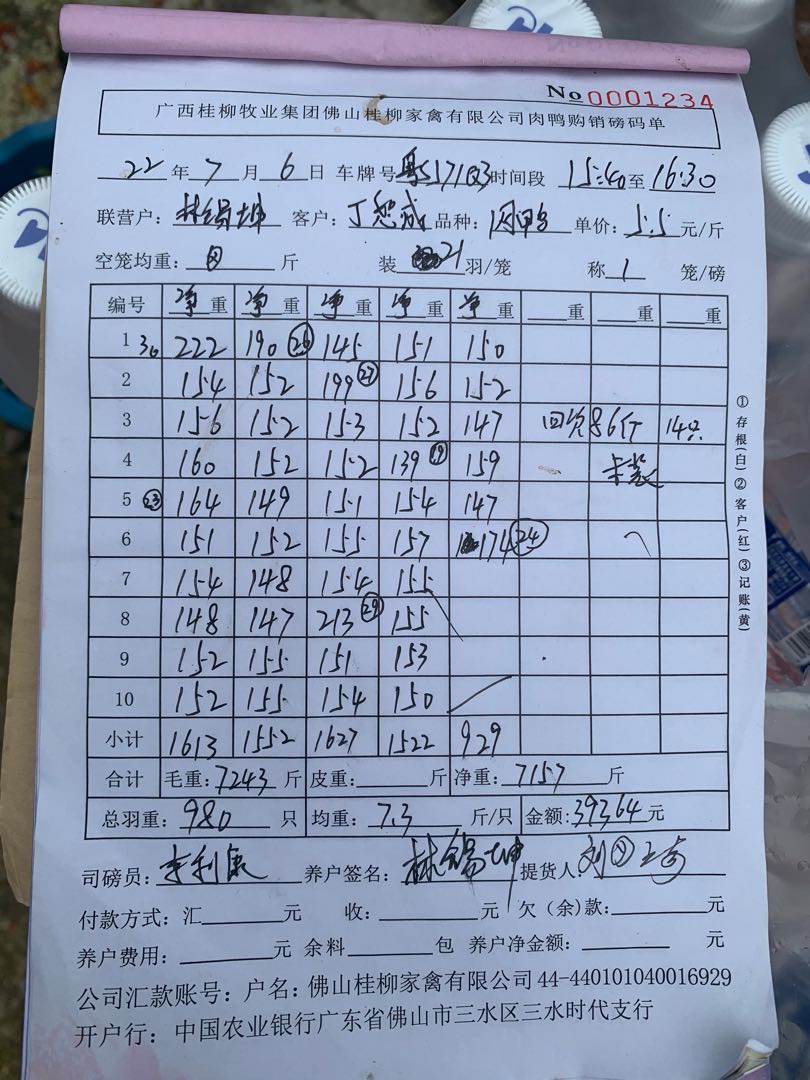 No 0001234
广西桂柳牧业集团佛山桂柳家禽有限公司肉鸭购销磅码单
22 年 7 月 6 日 车牌号 时间段 15:40 至 16:30
联营户: 林锡坤 客户: 丁恕成 品种: 肉鸭 单价: 5.5 元/斤
空笼均重: 斤 装 21 羽/笼 称 1 笼/磅
编号 净重 净重 净重 净重 净重 重 重 重
1 36 222 190 26 145 151 150
2 154 152 199 27 156 152
3 156 152 153 152 147 回 86斤 14只
4 160 152 152 139 19 159
5 23 164 149 151 154 147
6 151 152 155 157 174 24
7 154 148 154 155
8 148 147 213 29 155
9 152 155 151 153
10 152 155 154 150
小计 1613 1552 1627 1522 929
合计 毛重: 7243 斤 皮重: 斤 净重: 7157 斤
总羽重: 980 只 均重: 7.3 斤/只 金额: 39364 元
司磅员: 李利康 养户签名: 林锡坤 提货人: 刘
付款方式: 汇 元 收: 元 欠(余)款: 元
养户费用: 元 余料 包 养户净金额: 元
公司汇款账号: 户名: 佛山桂柳家禽有限公司 44-440101040016929
开户行: 中国农业银行广东省佛山市三水区三水时代支行
①存根(白)②客户(红)③记账(黄)